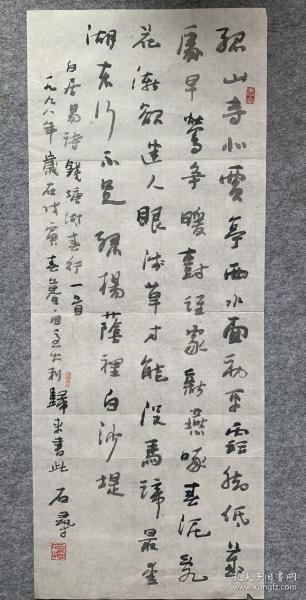 孤山寺北賈亭西水面初平雲腳低幾
處早鶯爭暖對誰家新燕啄春泥亂
花漸欲迷人眼淺草才能沒馬蹄最愛
湖東行不足綠楊蔭裡白沙堤
白居易詩錢塘湖春行一首
一九九八年歲在戊寅春暮自意大利歸來書此 石